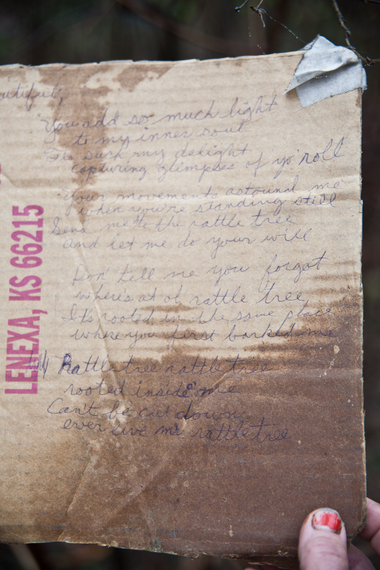 You add so much light
to my inner soul
such my delight
capturing glimpses of yo' roll
your movements astound me
when you're standing still
Send me to the rattle tree
and let me do your will
Don't tell me you forgot
where's at ol rattle tree
It's rooted in the same place
where you first barked me
Rattle tree rattle tree
rooted inside me
Can't be cut down
ever live me rattle tree
LENEXA, KS 66215